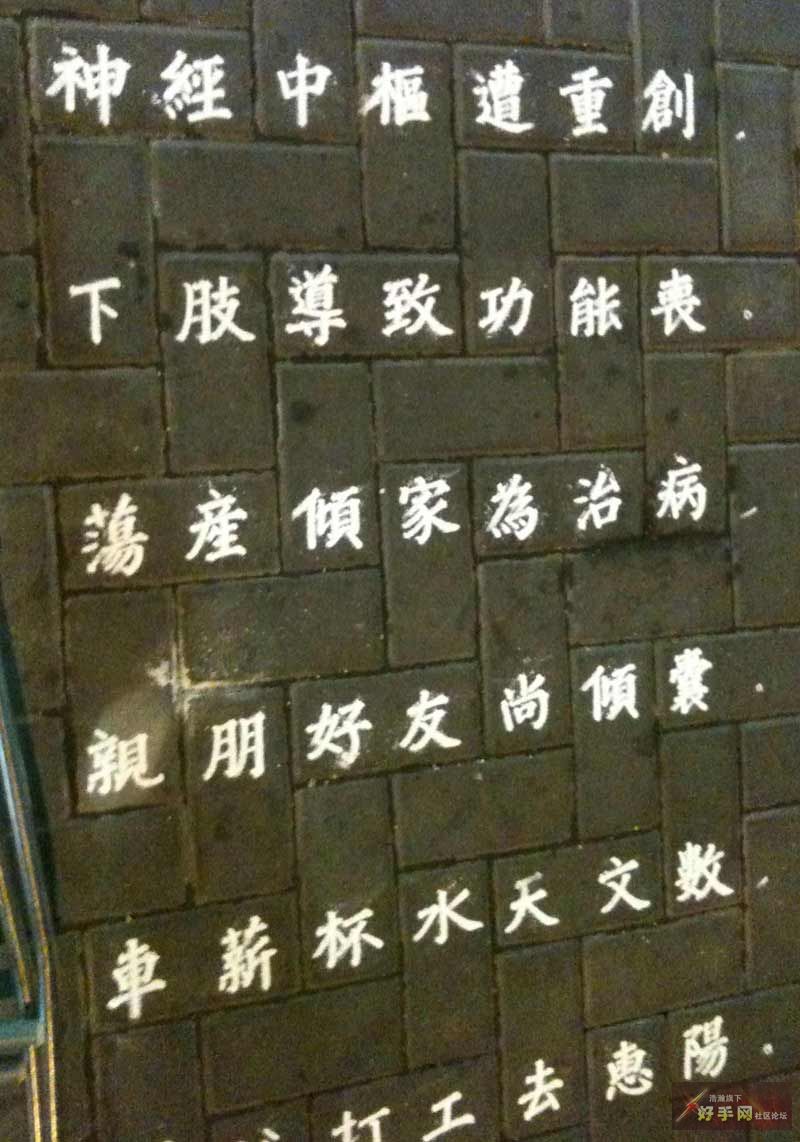 神經中樞遭重創，
下肢導致功能喪。
蕩産傾家為治病，
親朋好友尚傾囊。
車薪杯水天文數，
打工去惠陽。
浩瀚旗下
好手网社区论坛